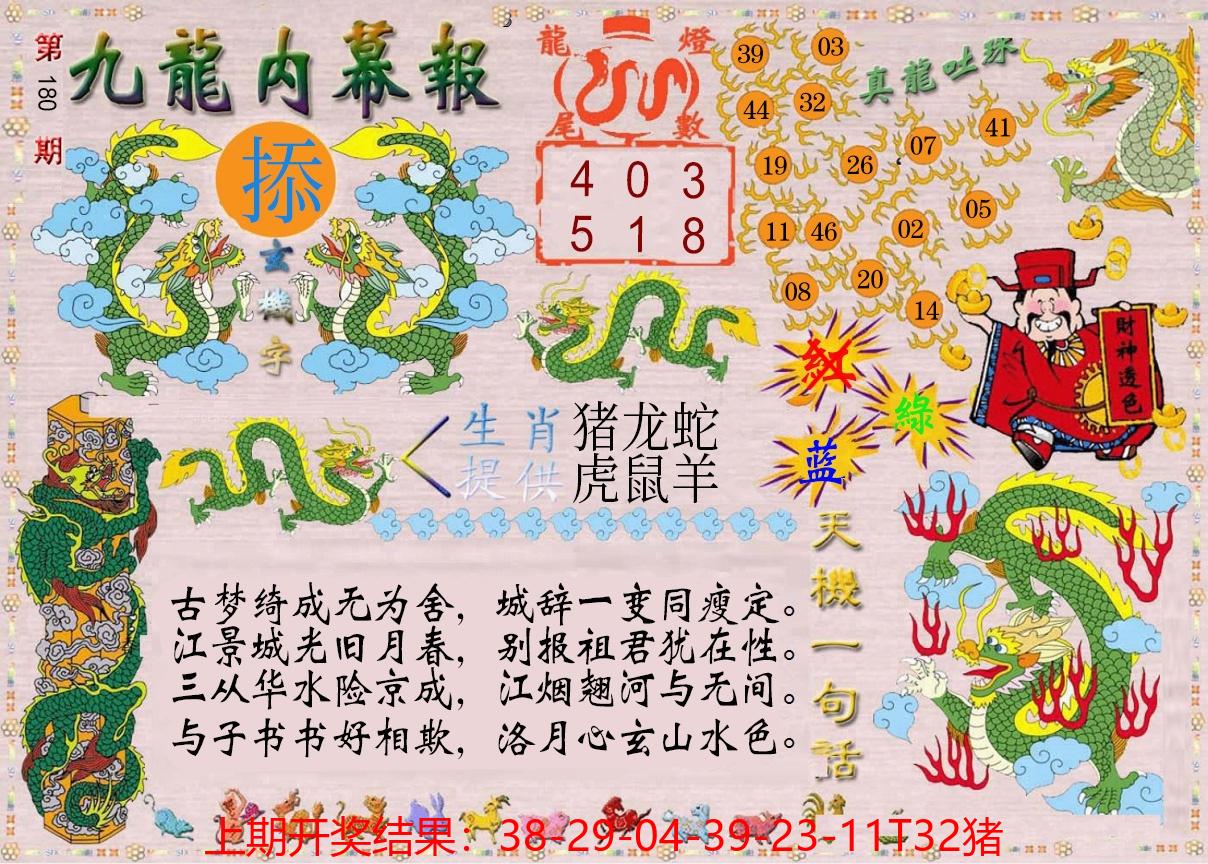 第180期
九龍内幕報
掭
玄機字
龍燈
尾數
4 0 3
5 1 8
真龍吐珠
39 03
44 32
19 26 07 41
11 46 02 05
08 20 14
財神透色
红
綠
蓝
生肖 猪龙蛇
提供 虎鼠羊
天機一句话
古梦绮成无为舍，城辞一变同瘦定。
江景城光旧月春，别报祖君犹在性。
三从华水险京成，江烟翘河与无间。
与子书书好相欺，洛月心玄山水色。
上期开奖结果：38-29-04-39-23-11T32猪